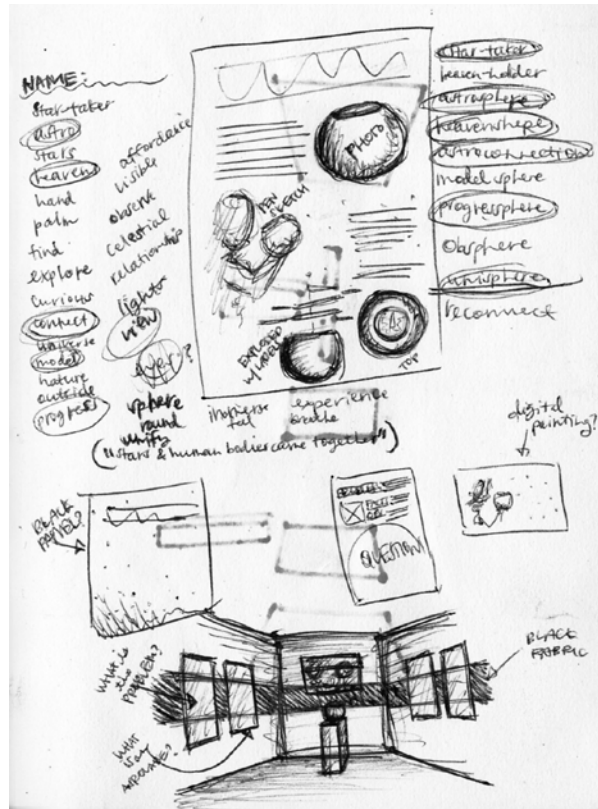 NAME:
star-taker
astro
stars
heavens
hand
palm
find
explore
curious
connect
universe
model
nature
outside
progress
affordance
visible
observe
celestial
relationship
lights
view
sphere
round
unity
feel
experience
breathe
("stars & human bodies came together")
PHOTO
PEN SKETCH
EXPLODED
W/ LABELS
TOP
star-taker
heaven-holder
astrosphere
astroconnection
model sphere
progressphere
obsphere
unisphere
reconnect
digital
painting?
BLACK
PANEL?
QUESTION
WHAT is
the
PROBLEM?
BLACK
FABRIC